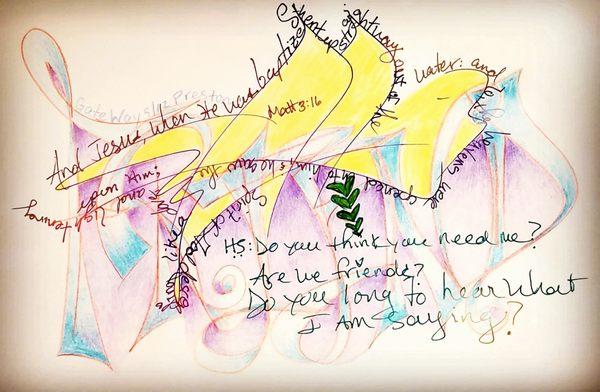 And Jesus, when He was baptized
went up straightway out of the
water: and
heavens were opened
unto him, & he saw the
Spirit of God
and lightening
upon Him:
Matt 3:16
HS: Do you think you need me?
Are we friends?
Do you long to hear what
I Am saying?